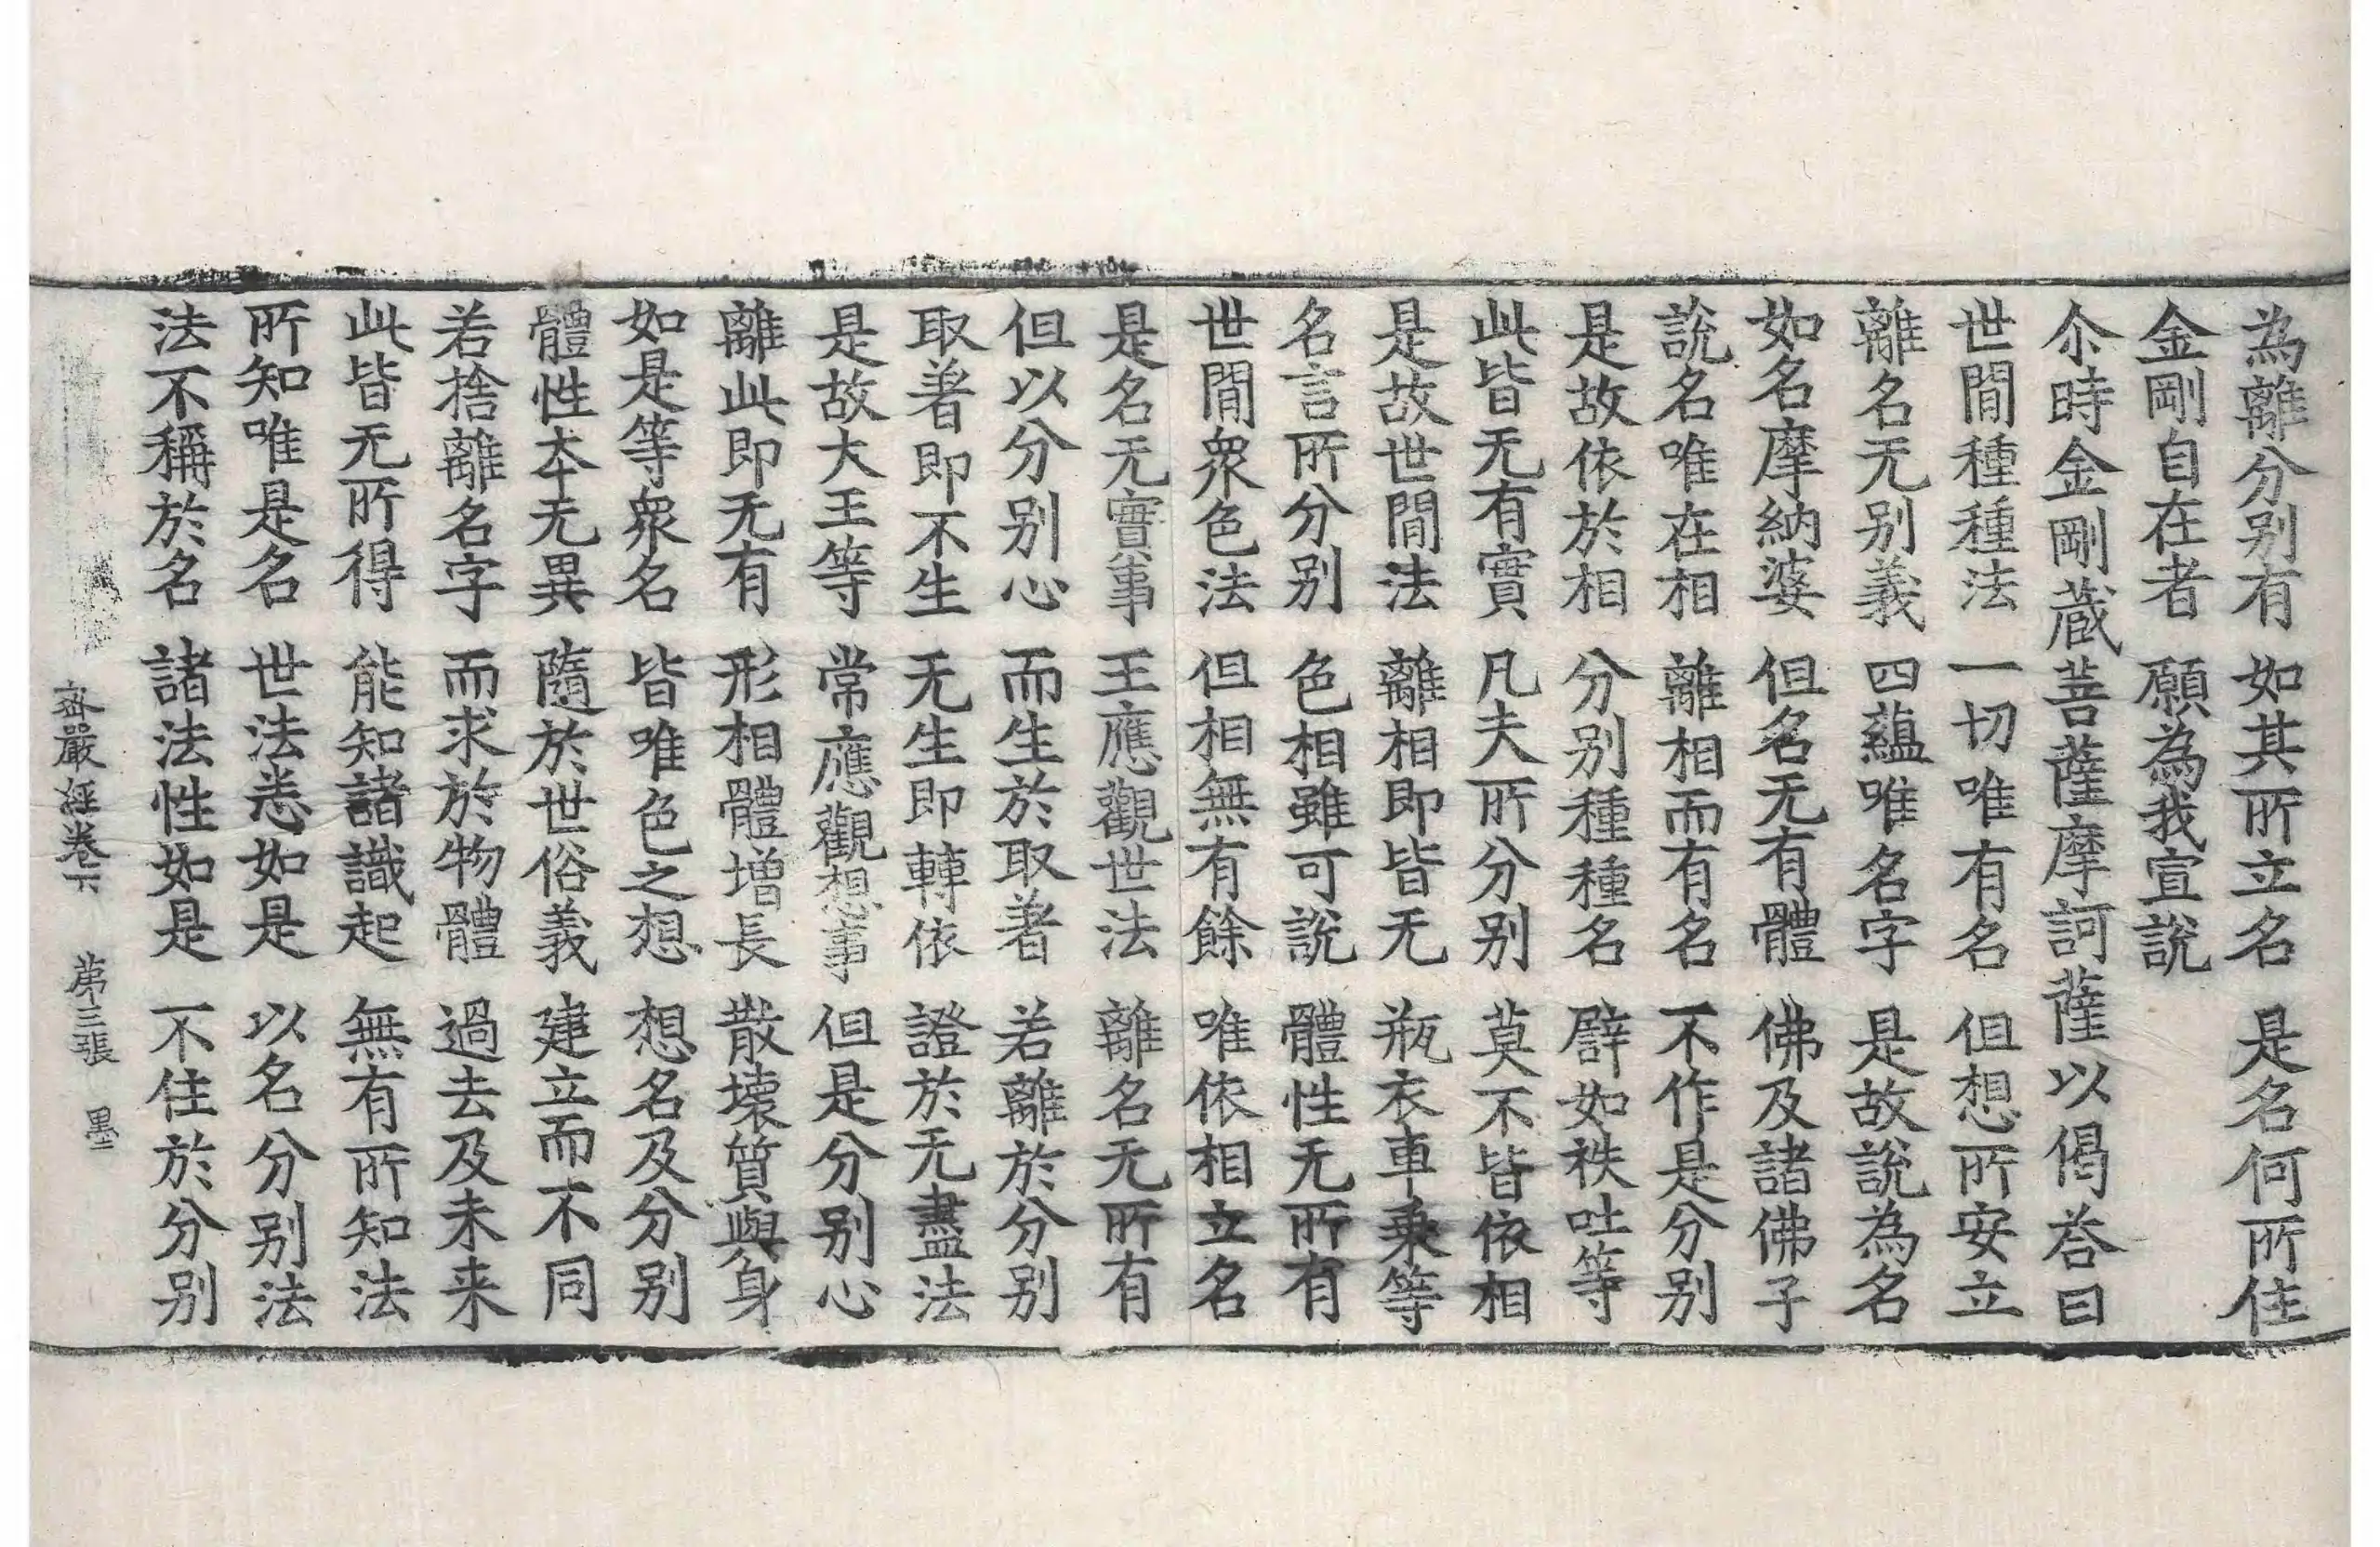 為離分别有　如其所立名　是名何所住
金剛自在者　願為我宣說
尒時金剛藏菩薩摩訶薩以偈荅曰
世閒種種法　一切唯有名　但想所安立
離名无别義　四蘊唯名字　是故說為名
如名摩納婆　但名无有體　佛及諸佛子
說名唯在相　離相而有名　不作是分别
是故依於相　分别種種名　譬如袟吐等
此皆无有實　凡夫所分别　莫不皆依相
是故世閒法　離相即皆无　瓶衣車乗等
名言所分别　色相雖可說　體性无所有
世閒衆色法　但相無有餘　唯依相立名
是名无實事　王應觀世法　離名无所有
但以分别心　而生於取著　若離於分别
取著即不生　无生即轉依　證於无盡法
是故大王等　常應觀想事　但是分别心
離此即无有　形相體增長　散壞質與身
如是等衆名　皆唯色之想　想名及分别
體性夲无異　隨於世俗義　建立而不同
若捨離名字　而求於物體　過去及未来
此皆无所得　能知諸識起　無有所知法
所知唯是名　世法悉如是　以名分别法
法不稱於名　諸法性如是　不住於分别
密嚴經卷下　苐三張　墨